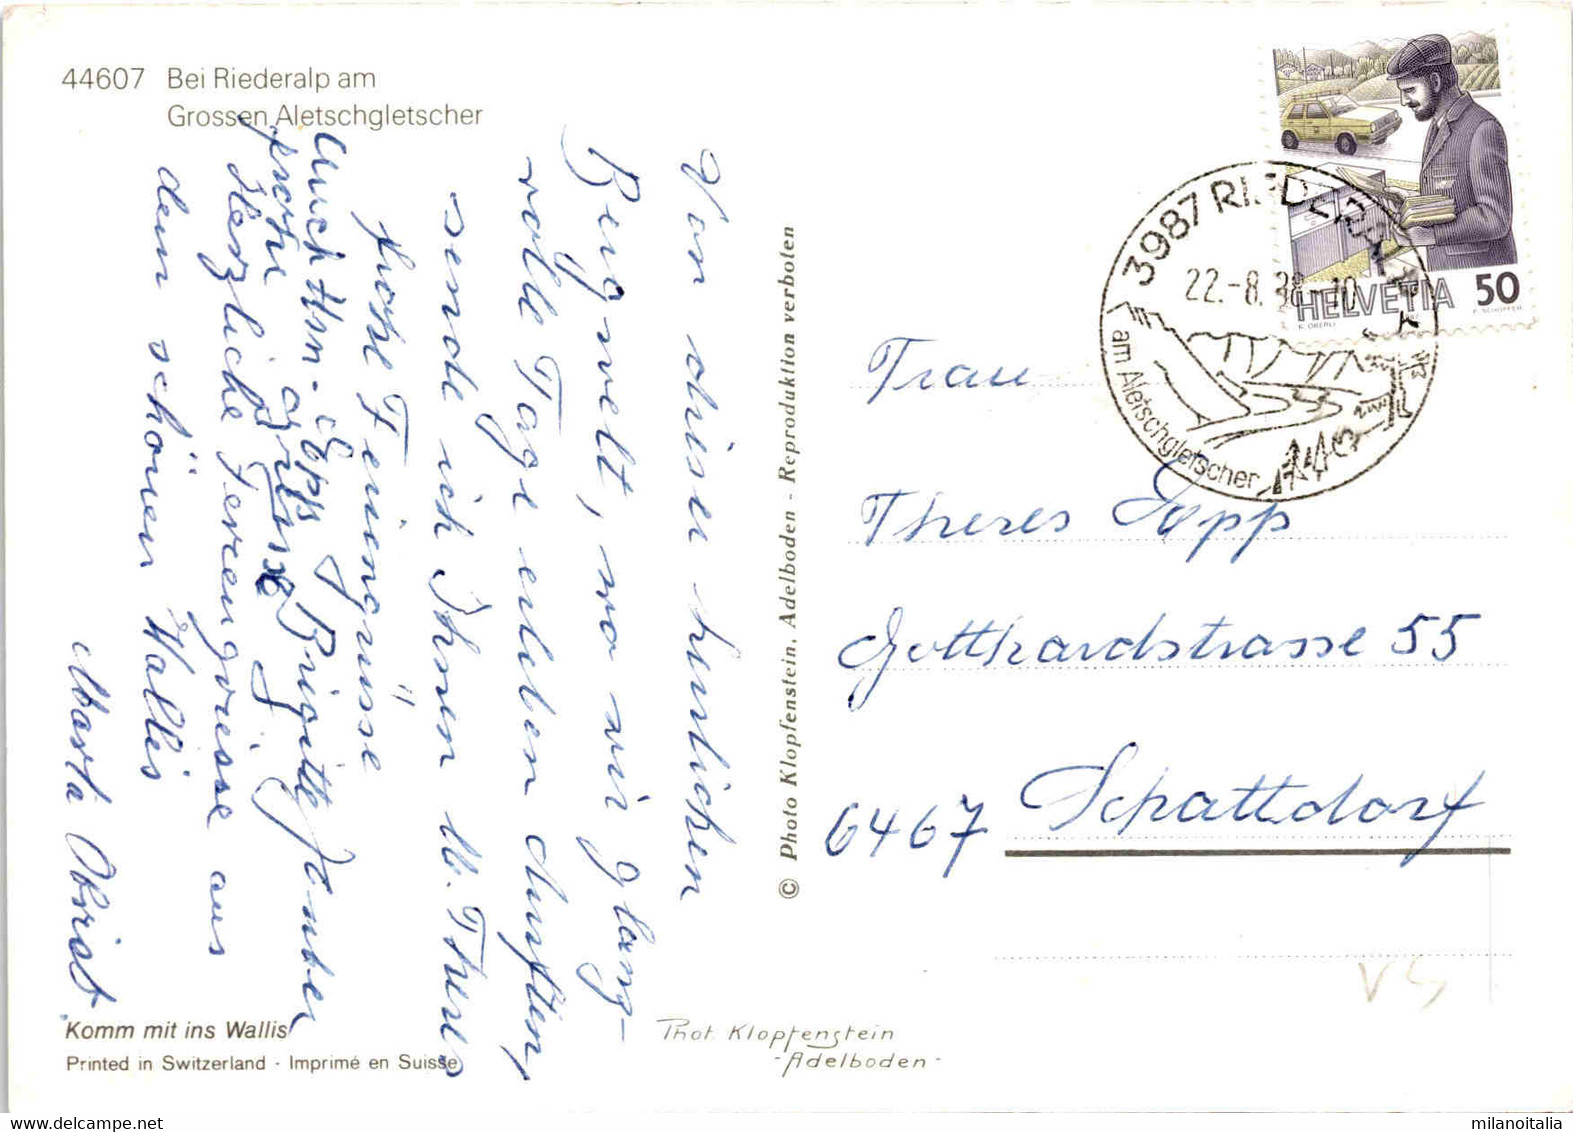 44607 Bei Riederalp am
Grossen Aletschgletscher
Von dieser herrlichen
Bergwelt, wo wir glanz-
volle Tage erleben durften,
sende ich Ihnen u. Theres
frohe Feriengrüsse
Auch Hrn. Epp Brigitte
frohe Grüsse
Herzliche Feriengrüsse aus
dem schönen Wallis
Marta Obrist
Komm mit ins Wallis
Printed in Switzerland - Imprimé en Suisse
© Photo Klopfenstein, Adelboden - Reproduktion verboten
Phot. Klopfenstein
-Adelboden-
HELVETIA 50
K. OBERLI
P. SCHOPFER
3987 RIED
22.-8. 88-10
am Aletschgletscher
Frau
Theres Epp
Gotthardstrasse 55
6467 Schattdorf
VS
milanoitalia